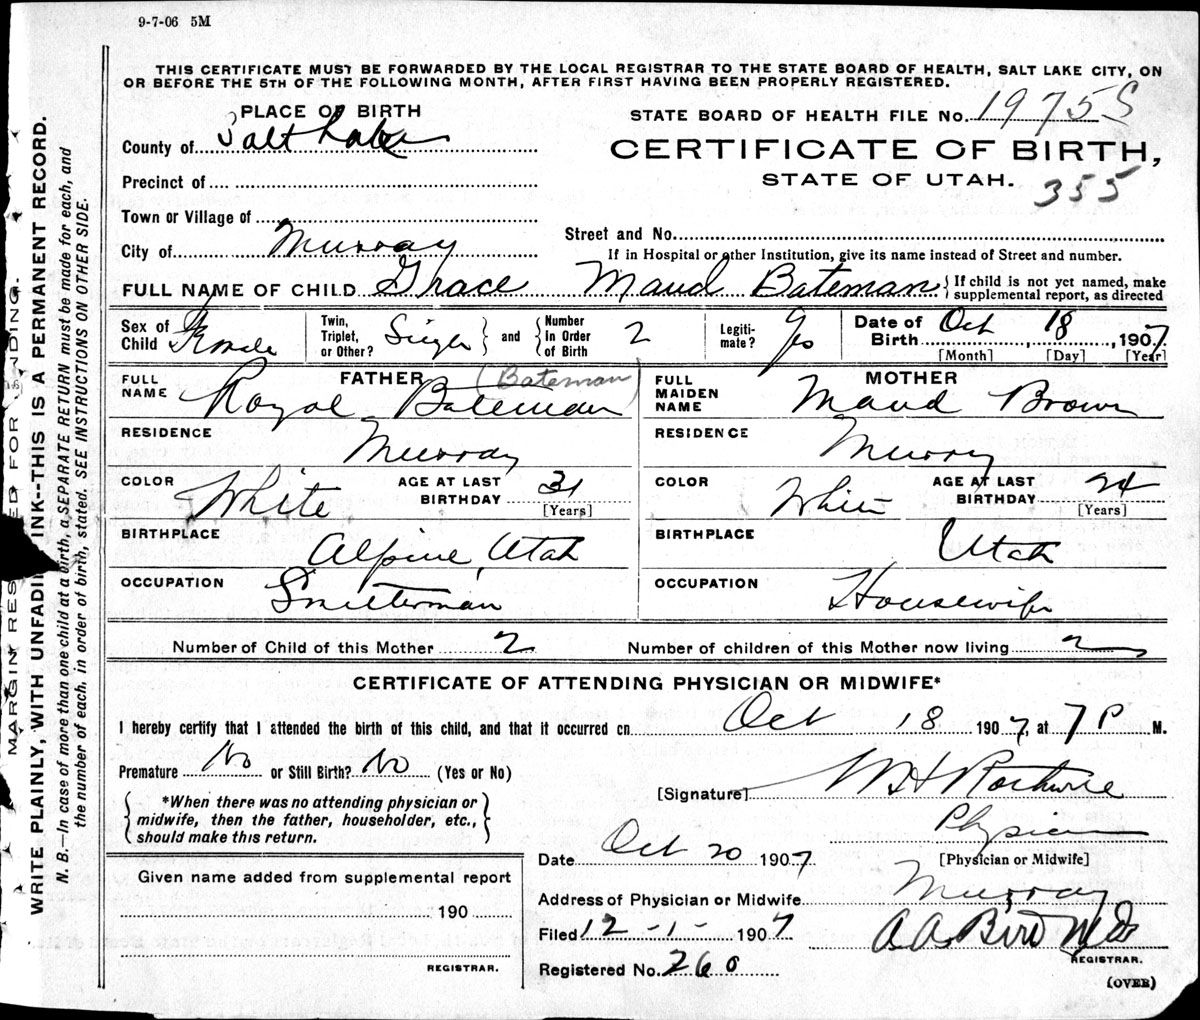 9-7-06 5M
THIS CERTIFICATE MUST BE FORWARDED BY THE LOCAL REGISTRAR TO THE STATE BOARD OF HEALTH, SALT LAKE CITY, ON
OR BEFORE THE 5TH OF THE FOLLOWING MONTH, AFTER FIRST HAVING BEEN PROPERLY REGISTERED.
PLACE OF BIRTH
STATE BOARD OF HEALTH FILE No. 1975S
County of Salt Lake
CERTIFICATE OF BIRTH,
STATE OF UTAH. 355
Precinct of
Town or Village of
Street and No.
City of Murray
If in Hospital or other Institution, give its name instead of Street and number.
FULL NAME OF CHILD Grace Maud Bateman { If child is not yet named, make
supplemental report, as directed
Sex of Child Female
Twin, Triplet, or Other? } and { Number In Order of Birth 2
Legiti-mate? Yes
Date of Birth Oct 18, 1907
[Month] [Day] [Year]
FATHER (Bateman)
FULL NAME Royal Bateman
MOTHER
FULL MAIDEN NAME Maud Brown
RESIDENCE Murray
RESIDENCE Murry
COLOR White AGE AT LAST BIRTHDAY 31 [Years]
COLOR White AGE AT LAST BIRTHDAY 24 [Years]
BIRTHPLACE Alpine, Utah
BIRTHPLACE Utah
OCCUPATION Smelterman
OCCUPATION Housewife
Number of Child of this Mother 2 Number of children of this Mother now living 2
CERTIFICATE OF ATTENDING PHYSICIAN OR MIDWIFE*
I hereby certify that I attended the birth of this child, and that it occurred on Oct 18 1907, at 7 P M.
Premature No or Still Birth? No (Yes or No)
[Signature] W H Rothwell
{ *When there was no attending physician or
midwife, then the father, householder, etc.,
should make this return. }
Physician
Date Oct 20 1907 [Physician or Midwife]
Given name added from supplemental report
190
REGISTRAR.
Address of Physician or Midwife Murray
Filed 12-1-1907 A A Bird MD
REGISTRAR.
Registered No. 260
(OVER)
MARGIN RESERVED FOR BINDING.
WRITE PLAINLY, WITH UNFADING INK--THIS IS A PERMANENT RECORD.
N. B.—In case of more than one child at a birth, a SEPARATE RETURN must be made for each, and
the number of each, in order of birth, stated. SEE INSTRUCTIONS ON OTHER SIDE.